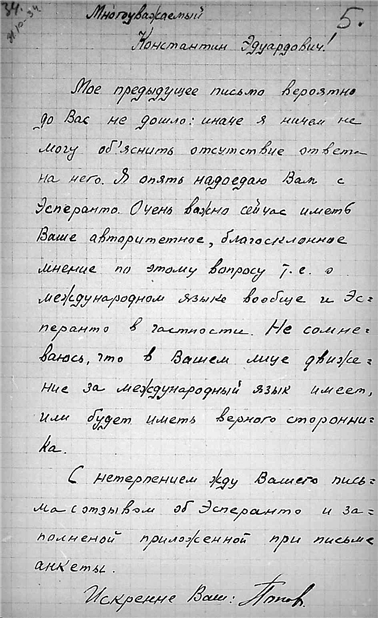 34.
5.
Многоуважаемый
Константин Эдуардович!
Мое предыдущее письмо вероятно
до Вас не дошло: иначе я ничем не
могу об'яснить отсутствие ответа
на него. Я опять надоедаю Вам с
Эсперанто. Очень важно сейчас иметь
Ваше авторитетное, благосклонное
мнение по этому вопросу т.е. о
международном языке вообще и Эс-
перанто в частности. Не сомне-
ваюсь, что в Вашем лице движе-
ние за международный язык имеет,
или будет иметь верного сторонни-
ка.
С нетерпением жду Вашего пись-
ма с отзывом об Эсперанто и за-
полненой приложенной при письме
анкеты.
Искренне Ваш: